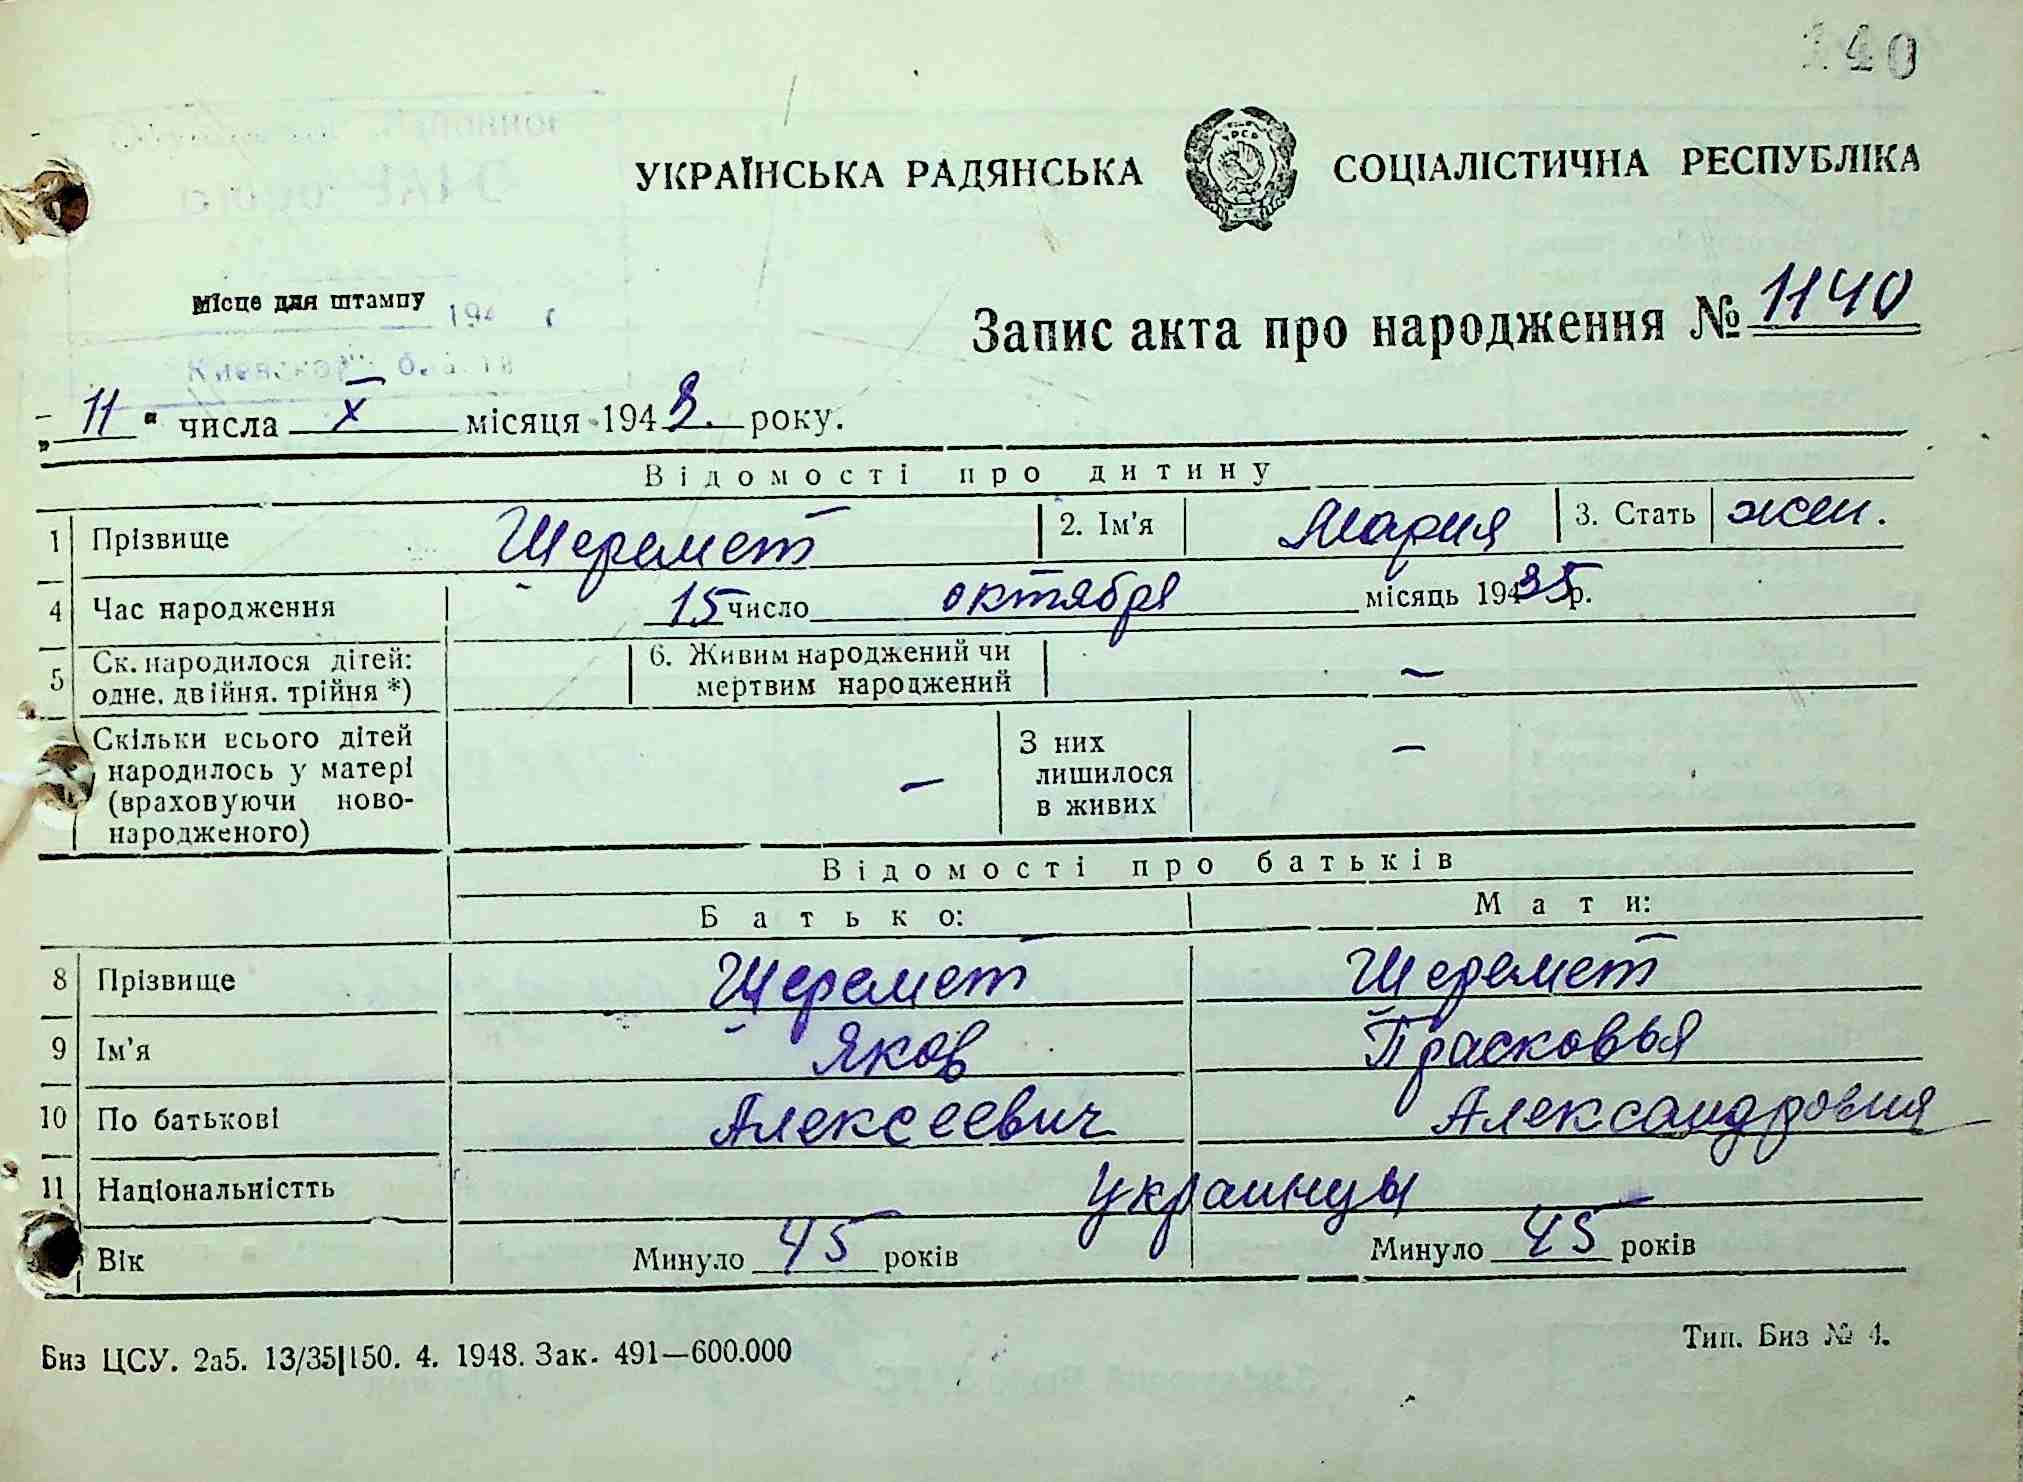 140
УКРАЇНСЬКА РАДЯНСЬКА СОЦІАЛІСТИЧНА РЕСПУБЛІКА
Місце для штампу
194 г
Запис акта про народження № 1140
„11“ числа X місяця 1948. року.
Відомості про дитину
1 Прізвище Шеремет 2. Ім'я Мария 3. Стать жен.
4 Час народження 15 число октября місяць 1935 р.
5 Ск. народилося дітей: одне, двійня, трійня *) 6. Живим народжений чи мертвим народжений —
Скільки всього дітей народилось у матері (враховуючи ново-народженого) — З них лишилося в живих —
Відомості про батьків
Батько: Мати:
8 Прізвище Шеремет Шеремет
9 Ім'я Яков Прасковья
10 По батькові Алексеевич Александровна
11 Національністть украинцы
Вік Минуло 45 років Минуло 45 років
Биз ЦСУ. 2а5. 13/35|150. 4. 1948. Зак. 491—600.000 Тип. Биз № 4.